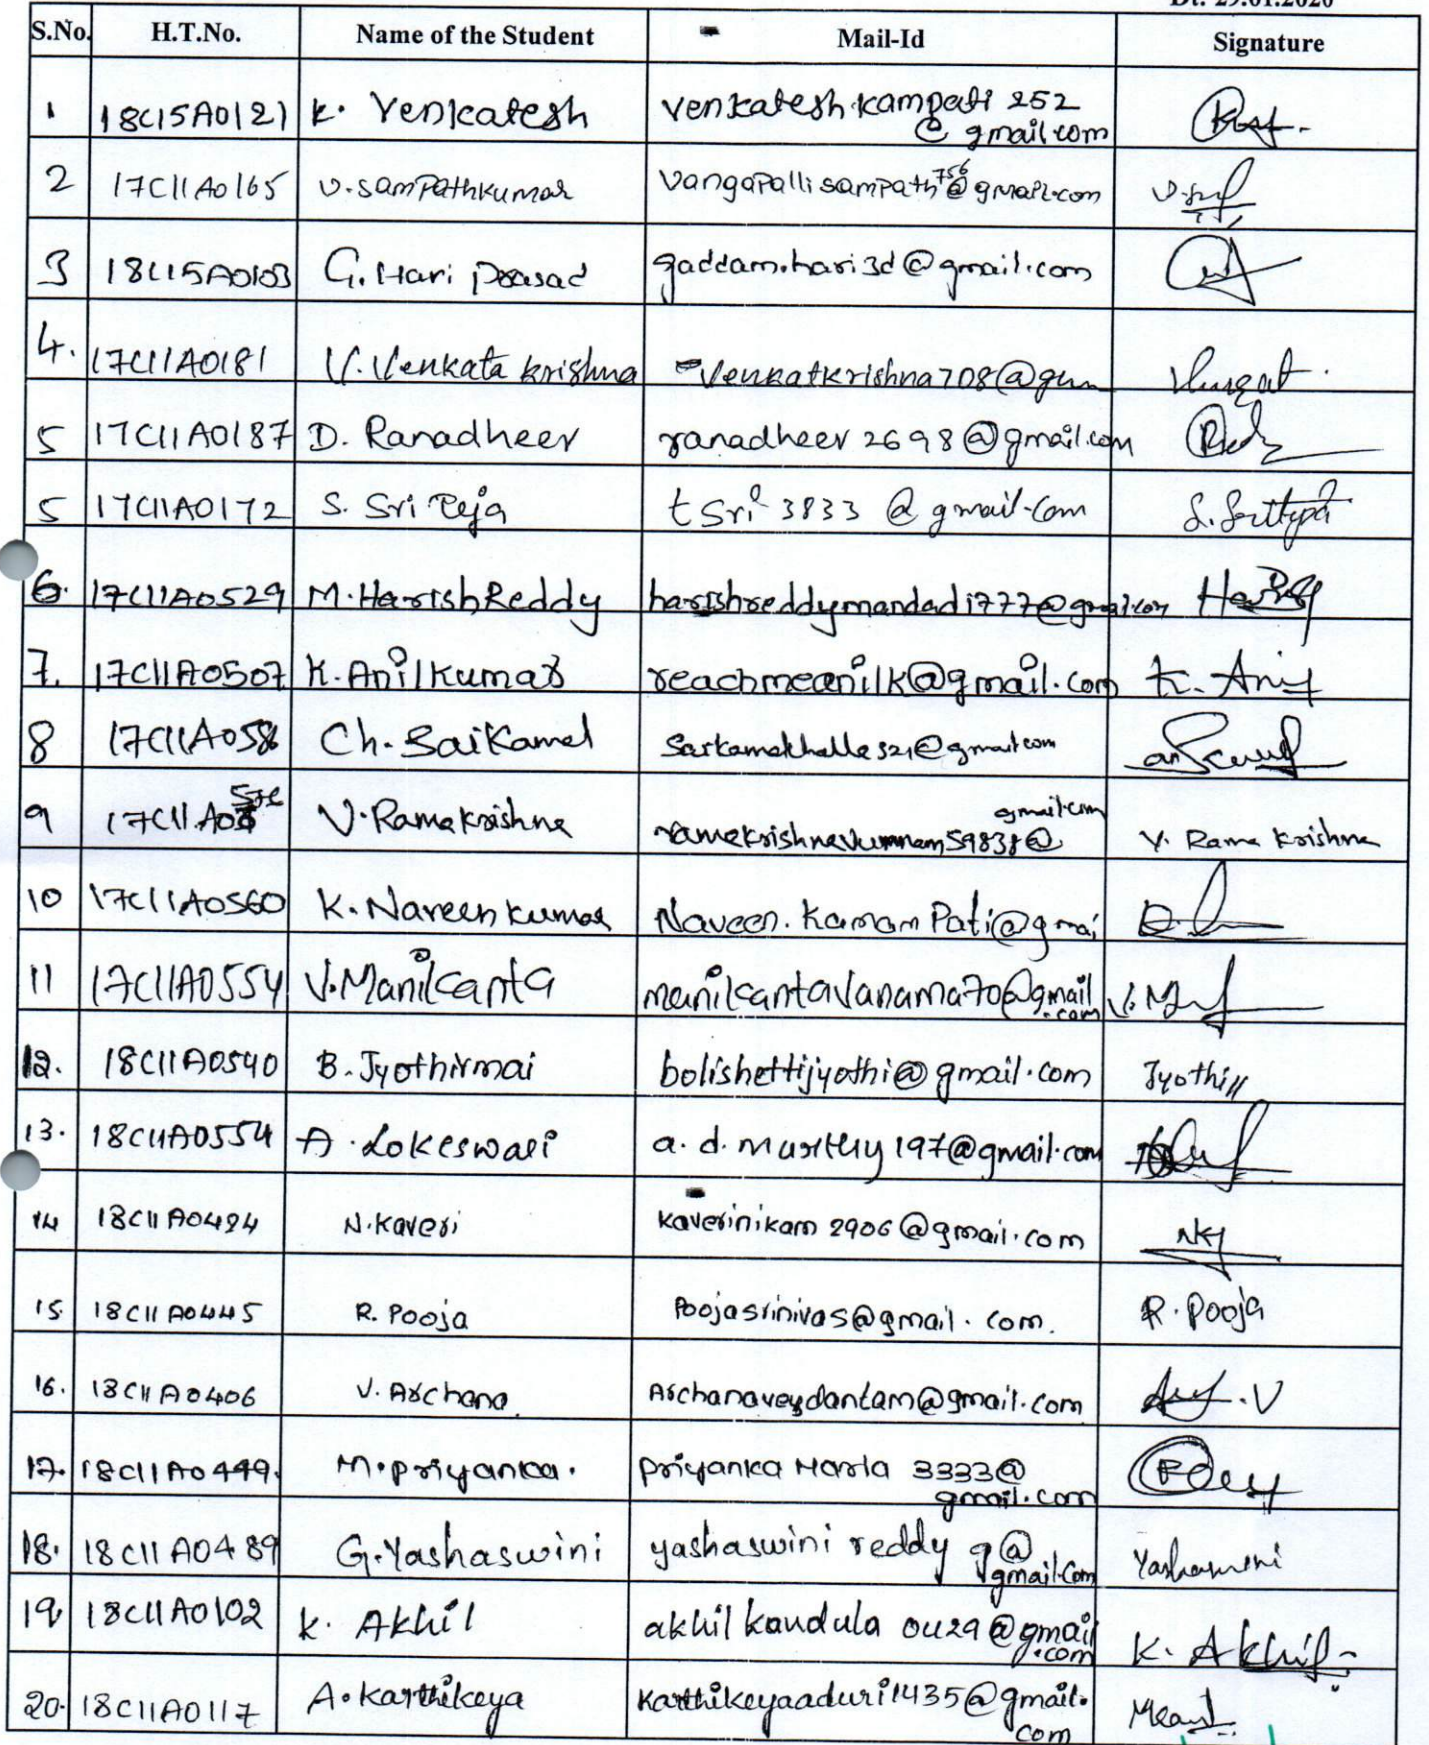 Dt: 29.01.2020
S.No. H.T.No. Name of the Student Mail-Id Signature
1 18C15A0121 K. Venkatesh venkatesh.kampati 252
@ gmail.com
2 17C11A0165 V.Sampathkumar vangapallisampath756@gmail.com
3 18C15A0103 G. Hari Prasad gaddam.hari3d@gmail.com
4. 17C11A0181 V. Venkata Krishna Venkatkrishna708@gm
5 17C11A0187 D. Ranadheer ranadheer 2698@gmail.com
5 17C11A0172 S. Sri Teja tsri 3833 @ gmail.com
6. 17C11A0529 M.Harish Reddy harishreddymandadi777@gmail.com
7. 17C11A0507 K.Anilkumar reachmeanilk@gmail.com K. Anil
8 17C11A0586 Ch. SaiKamal
9 17C11A05 V.Ramakrishna gmail.com
V. Rama Krishna
10 17C11A0560 K. Naveen kumar Naveen.KamamPati@gmai
11 17C11A0554 V.Manikanta manikantavanama70@gmail
.com
12. 18C11A0540 B. Jyothirmai bolishettijyothi@gmail.com Jyothi
13. 18C11A0554 A. Lokeswari a.d.murthy197@gmail.com
14 18C11A0424 N.Kaveri Kaverinikam 2906@gmail.com
15. 18C11A0445 R. Pooja Poojasrinivas@gmail.com. R. Pooja
16. 18C11A0406 V. Archana Archanaveydantam@gmail.com
17. 18C11A0449. M.Priyanka. Priyanka Marla 3333@
gmail.com
18. 18C11A0489 G.Yashaswini yashaswini reddy g@ Yashaswini
gmail.com
19 18C11A0102 K. Akhil akhil kandula 0429@gmail K. Akhil
.com
20. 18C11A0117 A.Karthikeya Karthikeyaaduri1435@gmail.
com